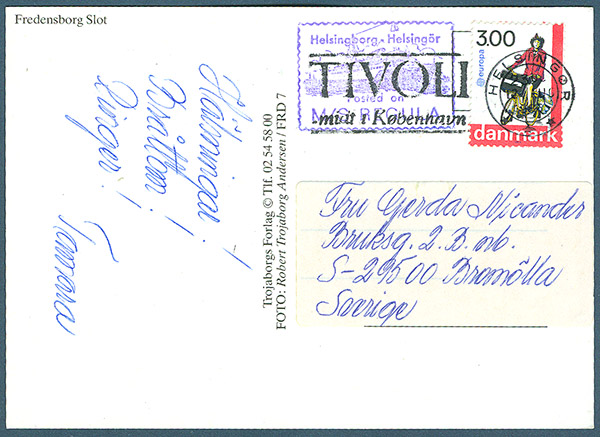 Fredensborg Slot
Hälsningar!
Bråttom!
Ringer!
Tamara
Trojaborgs Forlag © Tlf. 02 54 58 00
FOTO: Robert Trojaborg Andersen / FRD 7
Helsingborg - Helsingör
Posted on
M/S REGULA
TIVOLI
-midt i København
3.00
europa
danmark
HELSINGØR
Fru Gerda Nicander
Bruksg. 2 B. nb.
S-29500 Bromölla
Sverige